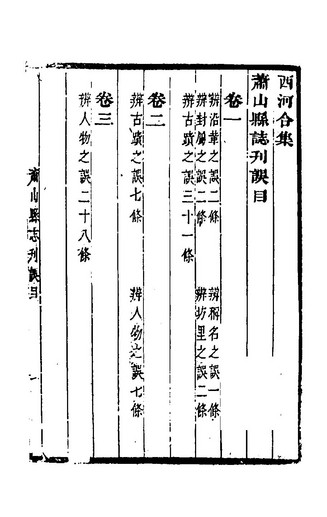 西河合集
蕭山縣誌刊誤目
卷一
辨沿革之誤二條
辨稱名之誤一條
辨封屬之誤二條
辨坊里之誤二條
辨古蹟之誤三十一條
卷二
辨古蹟之誤七條
辨人物之誤七條
卷三
辨人物之誤二十八條
蕭山縣志刊誤目
一